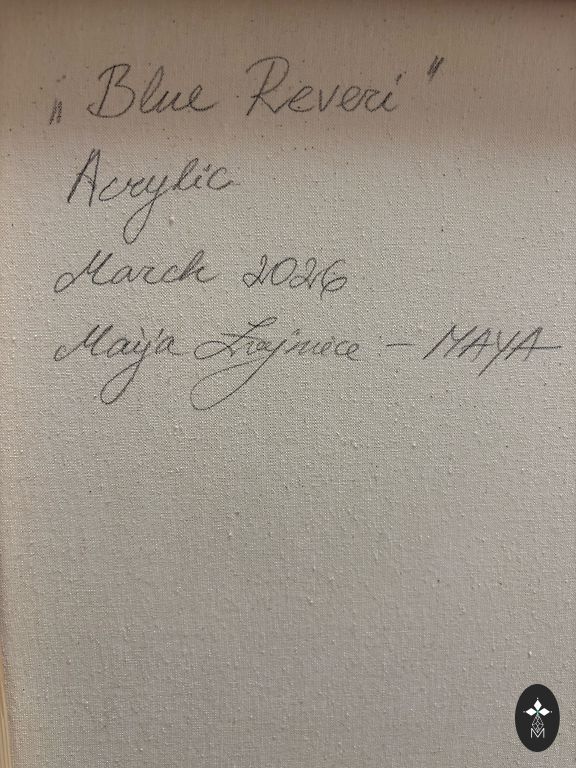 „Blue Reveri"
Acrylic
March 2026
Maija – MAYA